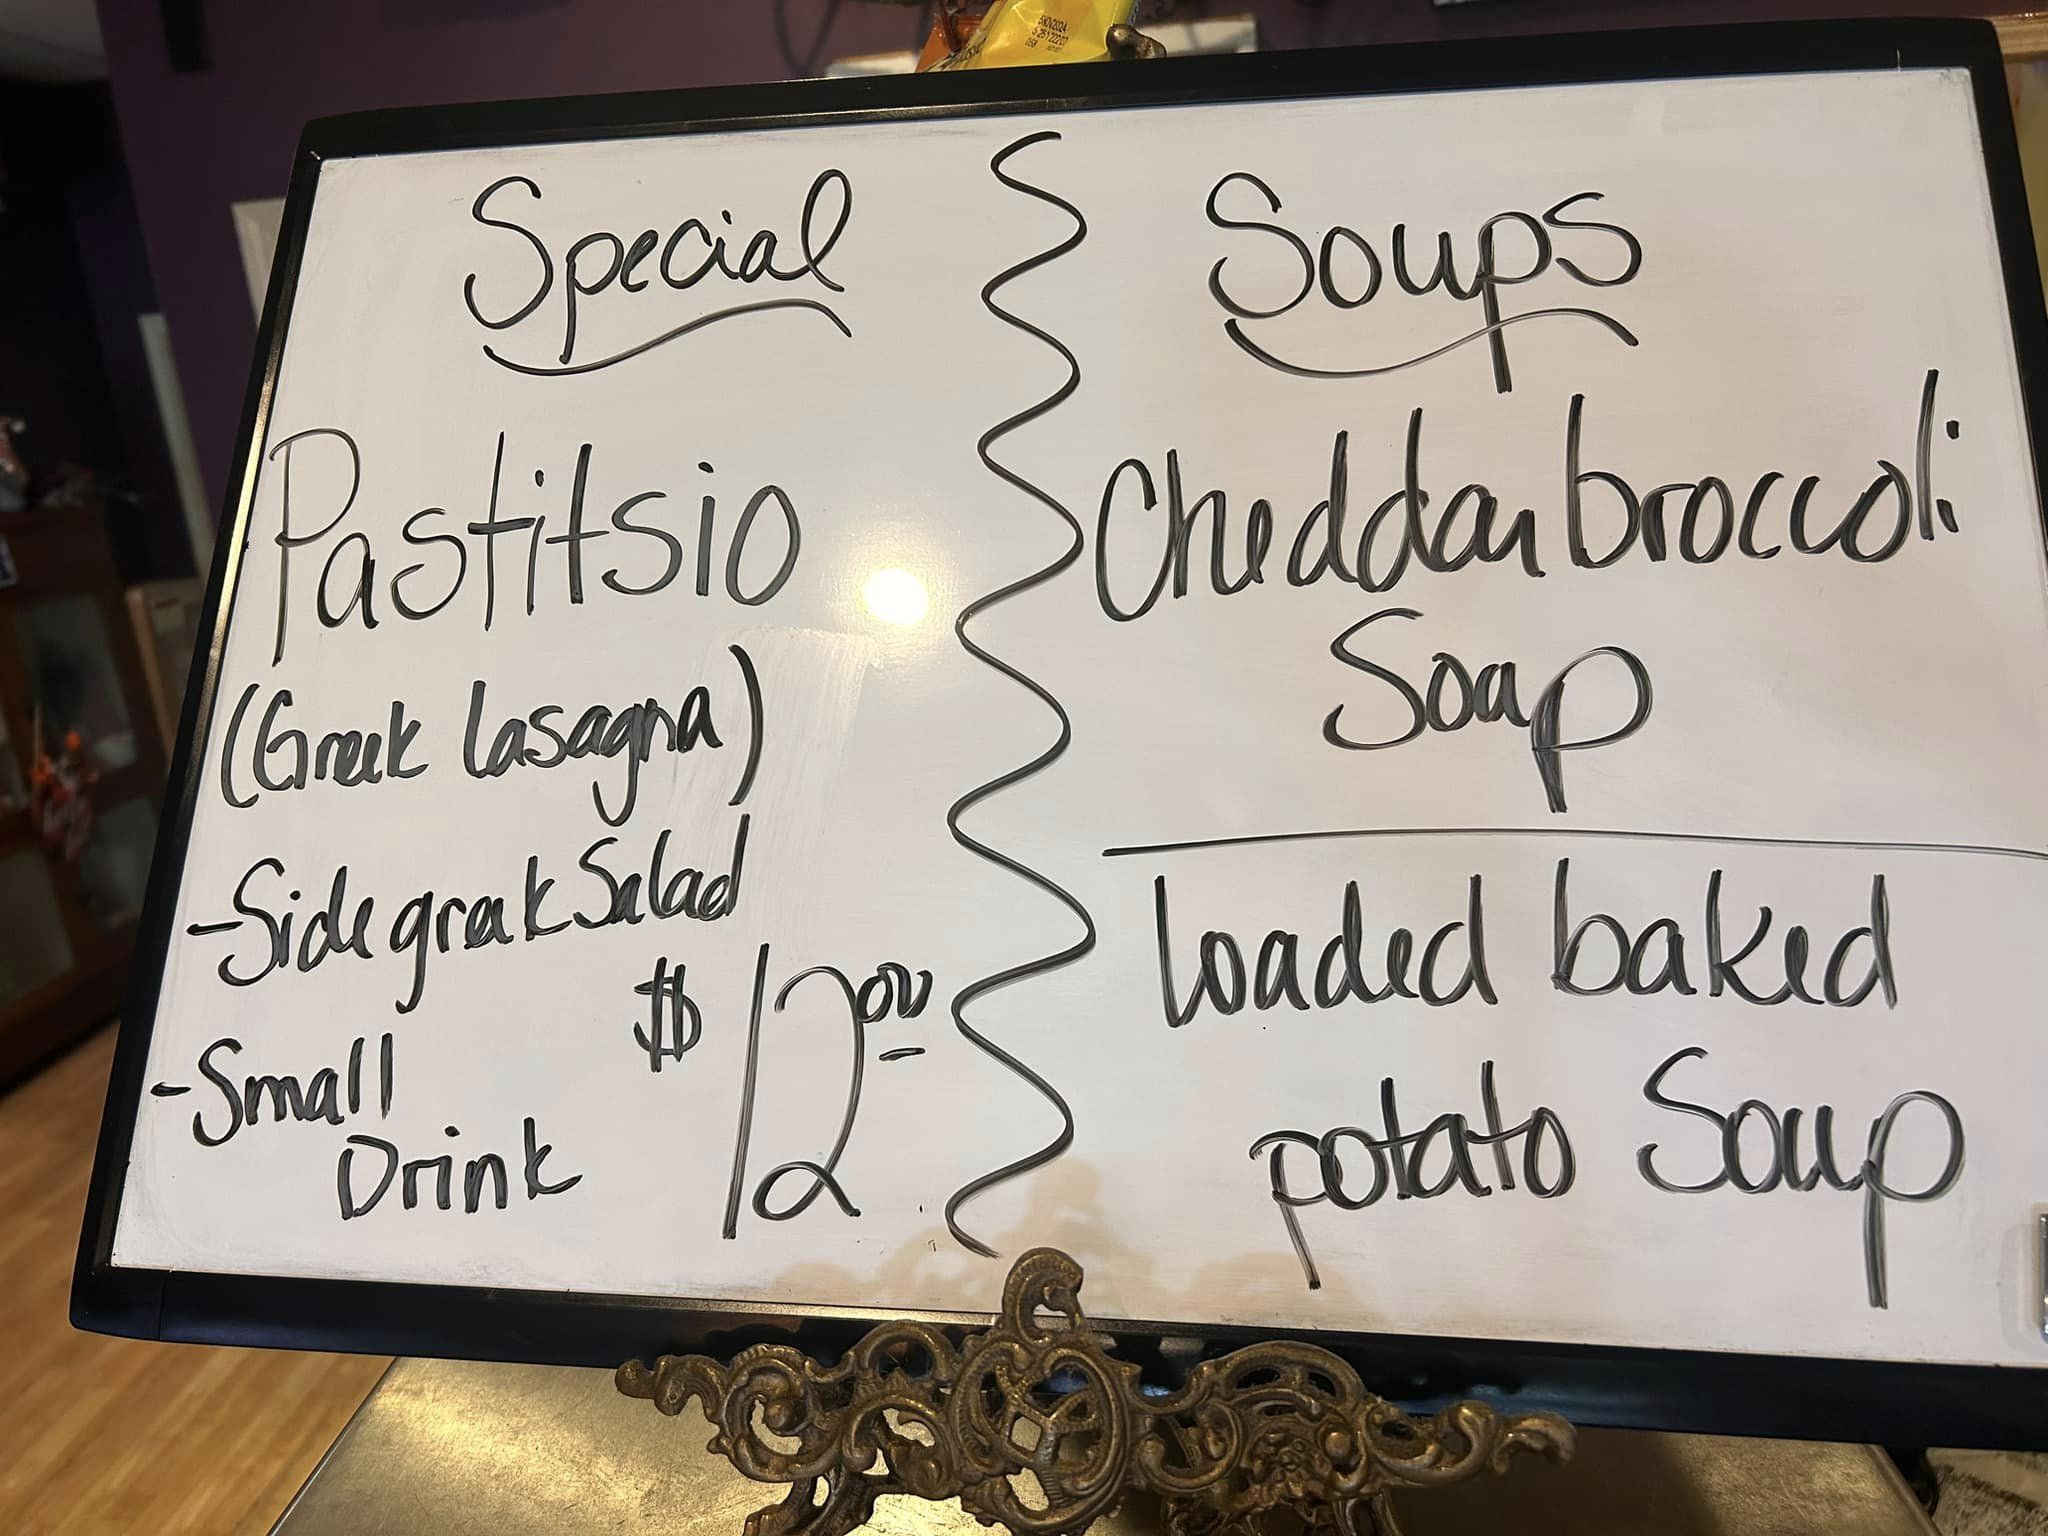 Special
Pastitsio
(Greek Lasagna)
- Side greek Salad
- Small
Drink
$ 12.00
Soups
Cheddar broccoli
Soap
Loaded baked
potato Soup